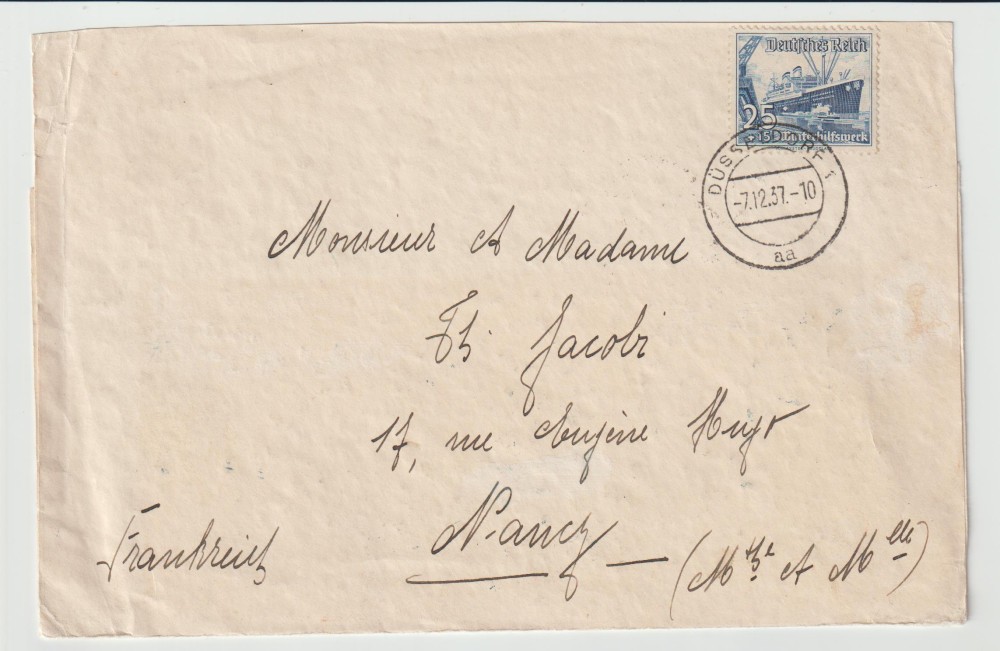 Deutsches Reich
25
+15 Winterhilfswerk
DÜSSELDORF 1
-7.12.37.-10
aa
Monsieur et Madame
Th Jacobi
17, rue Eugène Hugo
Nancy
Frankreich
(M et Melle)